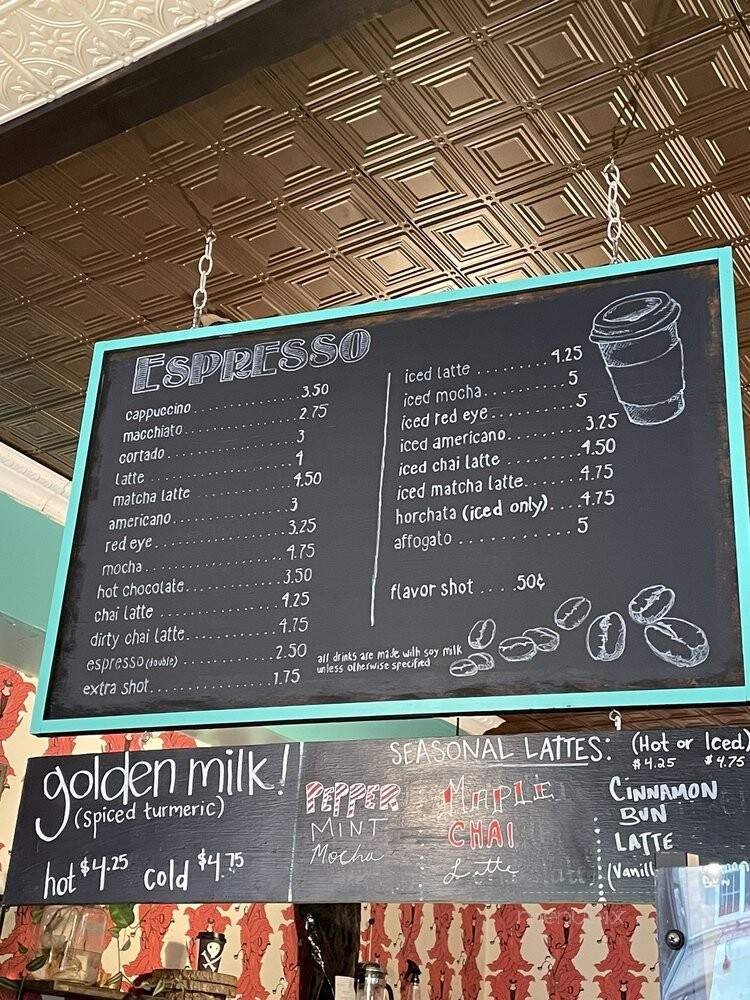 ESPRESSO
cappuccino 3.50
macchiato 2.75
cortado 3
latte 4
matcha latte 4.50
americano 3
red eye 3.25
mocha 4.75
hot chocolate 3.50
chai latte 4.25
dirty chai latte 4.75
espresso (double) 2.50
extra shot 1.75
iced latte 4.25
iced mocha 5
iced red eye 5
iced americano 3.25
iced chai latte 4.50
iced matcha latte 4.75
horchata (iced only) 4.75
affogato 5
flavor shot 50¢
all drinks are made with soy milk
unless otherwise specified
golden milk!
(spiced turmeric)
hot $4.25 cold $4.75
SEASONAL LATTES: (Hot or Iced)
$4.25 $4.75
PEPPER
MINT
Mocha
MAPLE
CHAI
Latte
CINNAMON
BUN
LATTE
(Vanill